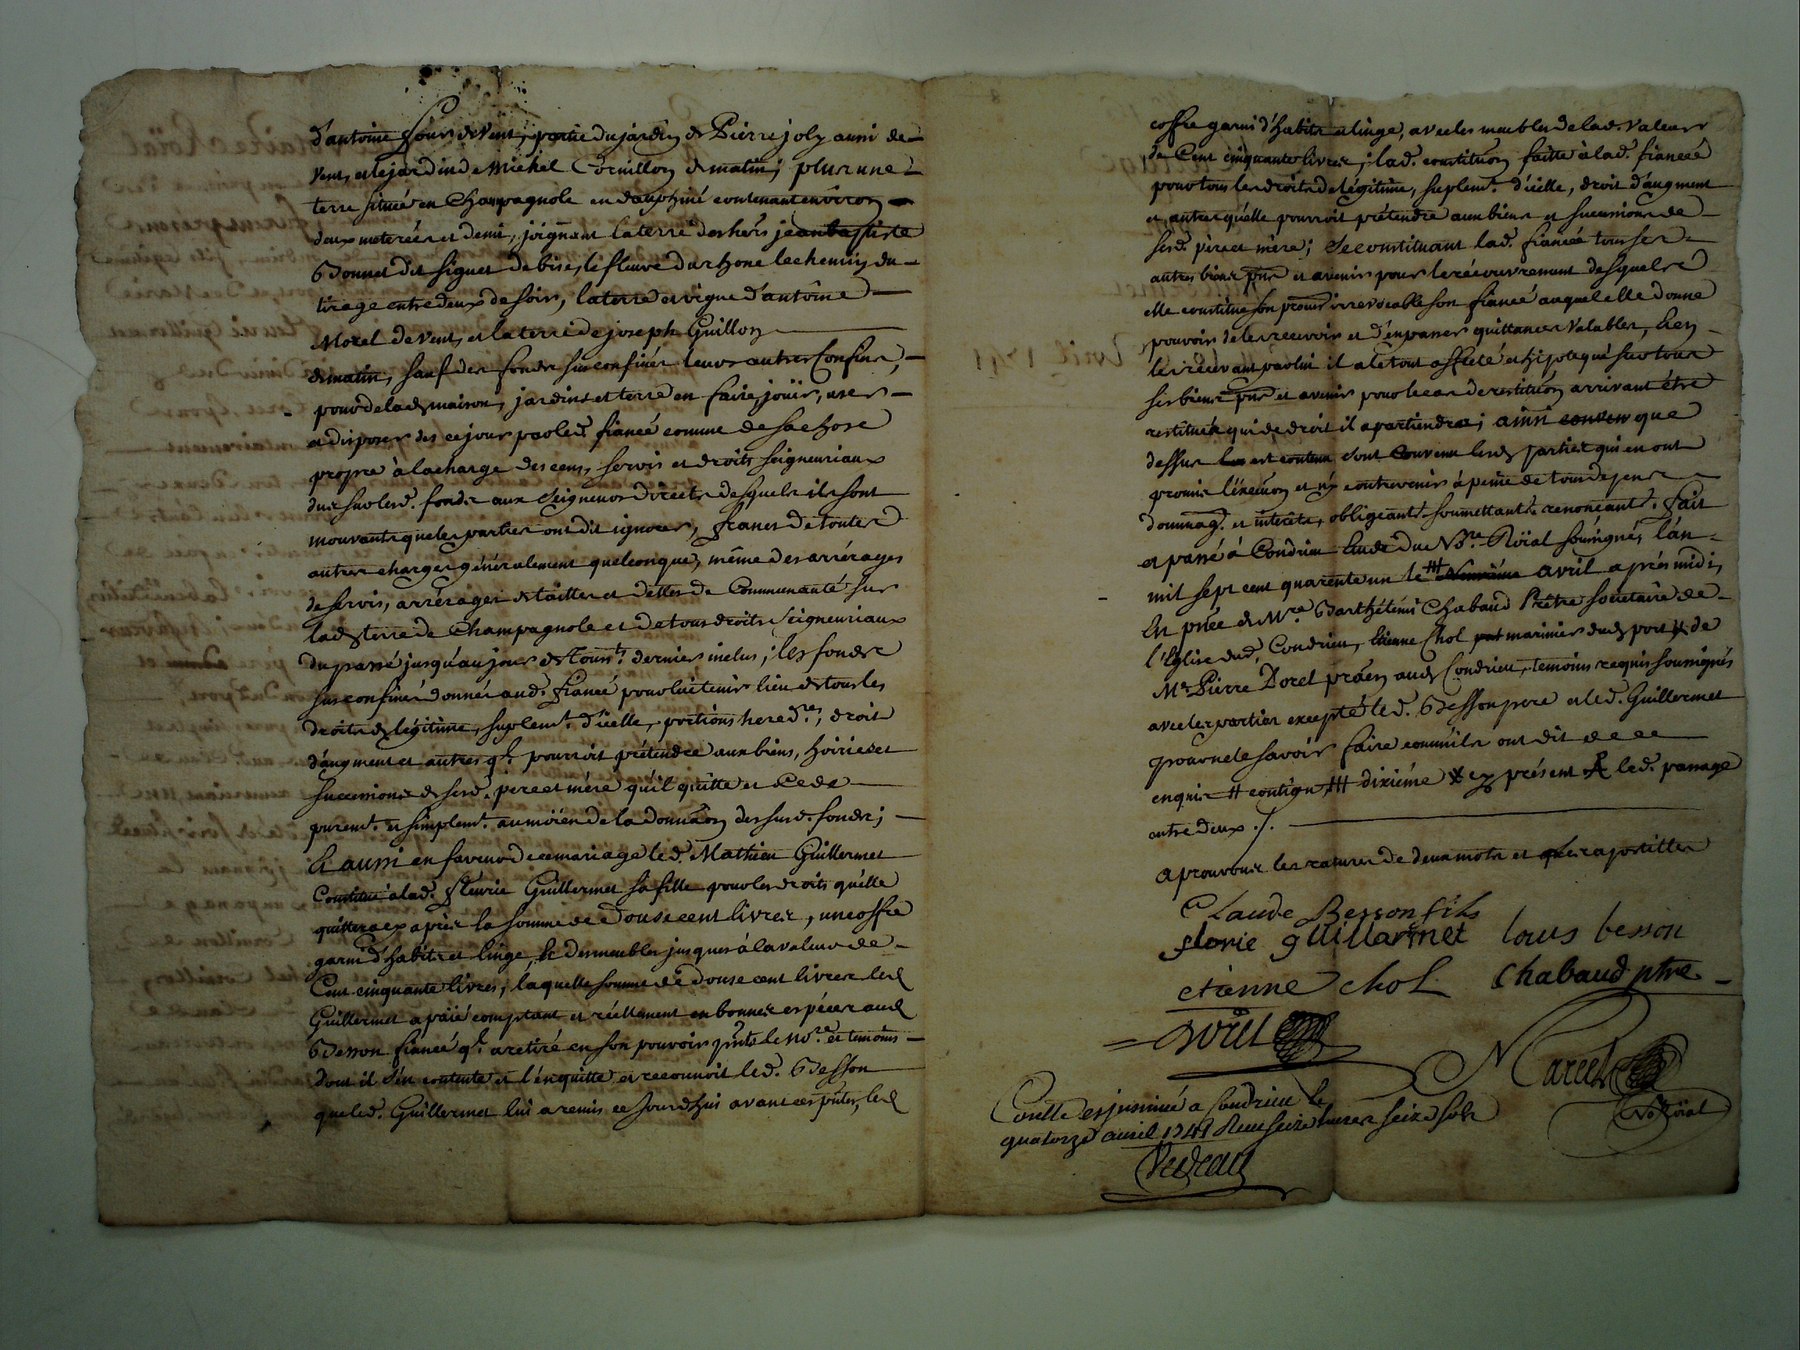 d'antoine Jour de vent, partie du jardin de Pierre joly aussi de
vent, et le jardin de Michel Cornillon de matin; plus une
terre située en Champagnole en dauphiné contenant environ
deux meterées et demi, joignant la terre des hers jean baptiste
Bonnet dit Siguet de bise, le fleuve du rhone le chemin du
tirage entre deux de soir, la terre et vigne d'antoine
Morel de vent, et la terre de joseph Guillon
de matin, sauf des fonds susconfinés leurs autres Confins,
pour de lad. maison, jardins et terre en faire, joüir, user
et disposer des ce jour par led. fiancé comme de sa chose
propre à la charge des cens, servis et droits seigneuriaux
dus sur lesd. fonds aux Seigneurs directs desquels ils sont
mouvants que les parties ont dit ignorer, francs de toutes
autres charges généralement quelconques, même des arrérages
de servis, arrérages de tailles et dettes de Communauté sur
lad. terre de Champagnole et de tous droits Seigneuriaux
du passé jusqu'au jour de touss.ts dernier inclus; les fonds
susconfinés donnés aud. fiancé pour luitenir lieu de tous les
droits de légitime, suplem.t d'icelle, portions hered.res, droit
d'augment et autres q.l pourroit prétendre aux biens, hoiries et
successions de sesd. pere et mère qu'il quitte et cede
purem.t et simplem.t au moïen de la donnâon des susd. fonds;
Et aussi en faveur de ce mariage led. Mathieu Guillermet
Constitue à lad. fleurie Guillermet sa fille pour les droits qu'elle
quittera cy après la somme de Douse cent livres, un coffre
garni d'habits et linge, et des meubles jusques à la valeur de
Cent cinquante livres; laquelle somme de douse cent livres led.
Guillermet a païé comptant et réellement en bonnes espéces aud.
Besson fiancé q.l a retiré en son pouvoir pnts le No.re et temoins
dont il s'en contente et l'en quitte et reconnoit led. Besson
que led. Guillermet lui a remis ce Jourdhui avant ces pntes, led.
coffre garni d'habits et linge, avec les meubles de lad. valeur
de Cent cinquante livres; lad. constitution faitte à lad. fiancée
pour tous les droits de légitime, suplem.t d'icelle, droit d'augment
et autres qu'elle pourroit prétendre aux biens et successions de
sesd. père et mère; Se constituant lad. fiancée tous ses
autres biens pns et avenir pour le récouvrement desquels
elle constitue son procur irrevocable son fiancé auquel elle donne
pouvoir de les recevoir et d'en passer quittances valables, Et en
les recevant par lui il a le tout asseté et hipotequé sur tous
ses biens pns et avenir pour le cas de restitution arrivant être
restitués à qui de droit il apartiendra; ainsi que
dessus sont Convenu lesd. parties qui en ont
promis l'éxecuon et n'y contrevenir à peine de tous dépens
dommag. et intérêts, obligeants soumettants renonçants. fait
et passé à Condrieu Etude du No.re Roïal soûsigné, l'an
mil sept cent quarente un le ### avril après midi,
En pnce de M.re Barthélémi Chabaud Prêtre societaire de
l'Eglise dud. Condrieu, Etienne Chol marinier dud. port de
M.e Pierre Dorel pratn aud. Condrieu, temoins requis soussignés
avec les parties excepté led. Besson pere et led. Guillermet
pour ne le savoir faire comm'ils ont dit de ce
enquis # contigu ### dixième présent led. passage
entre deux ./.
aprouvons les ratures de deux mots et apostilles
Claude Besson fils
florie guillarmet louis besson
etienne chol Chabaud ptre
Dorel
Marcel
No. Roïal
Conllé et insinué a Condrieu le
quatorze avril 1741 Receu seize livres seize sols